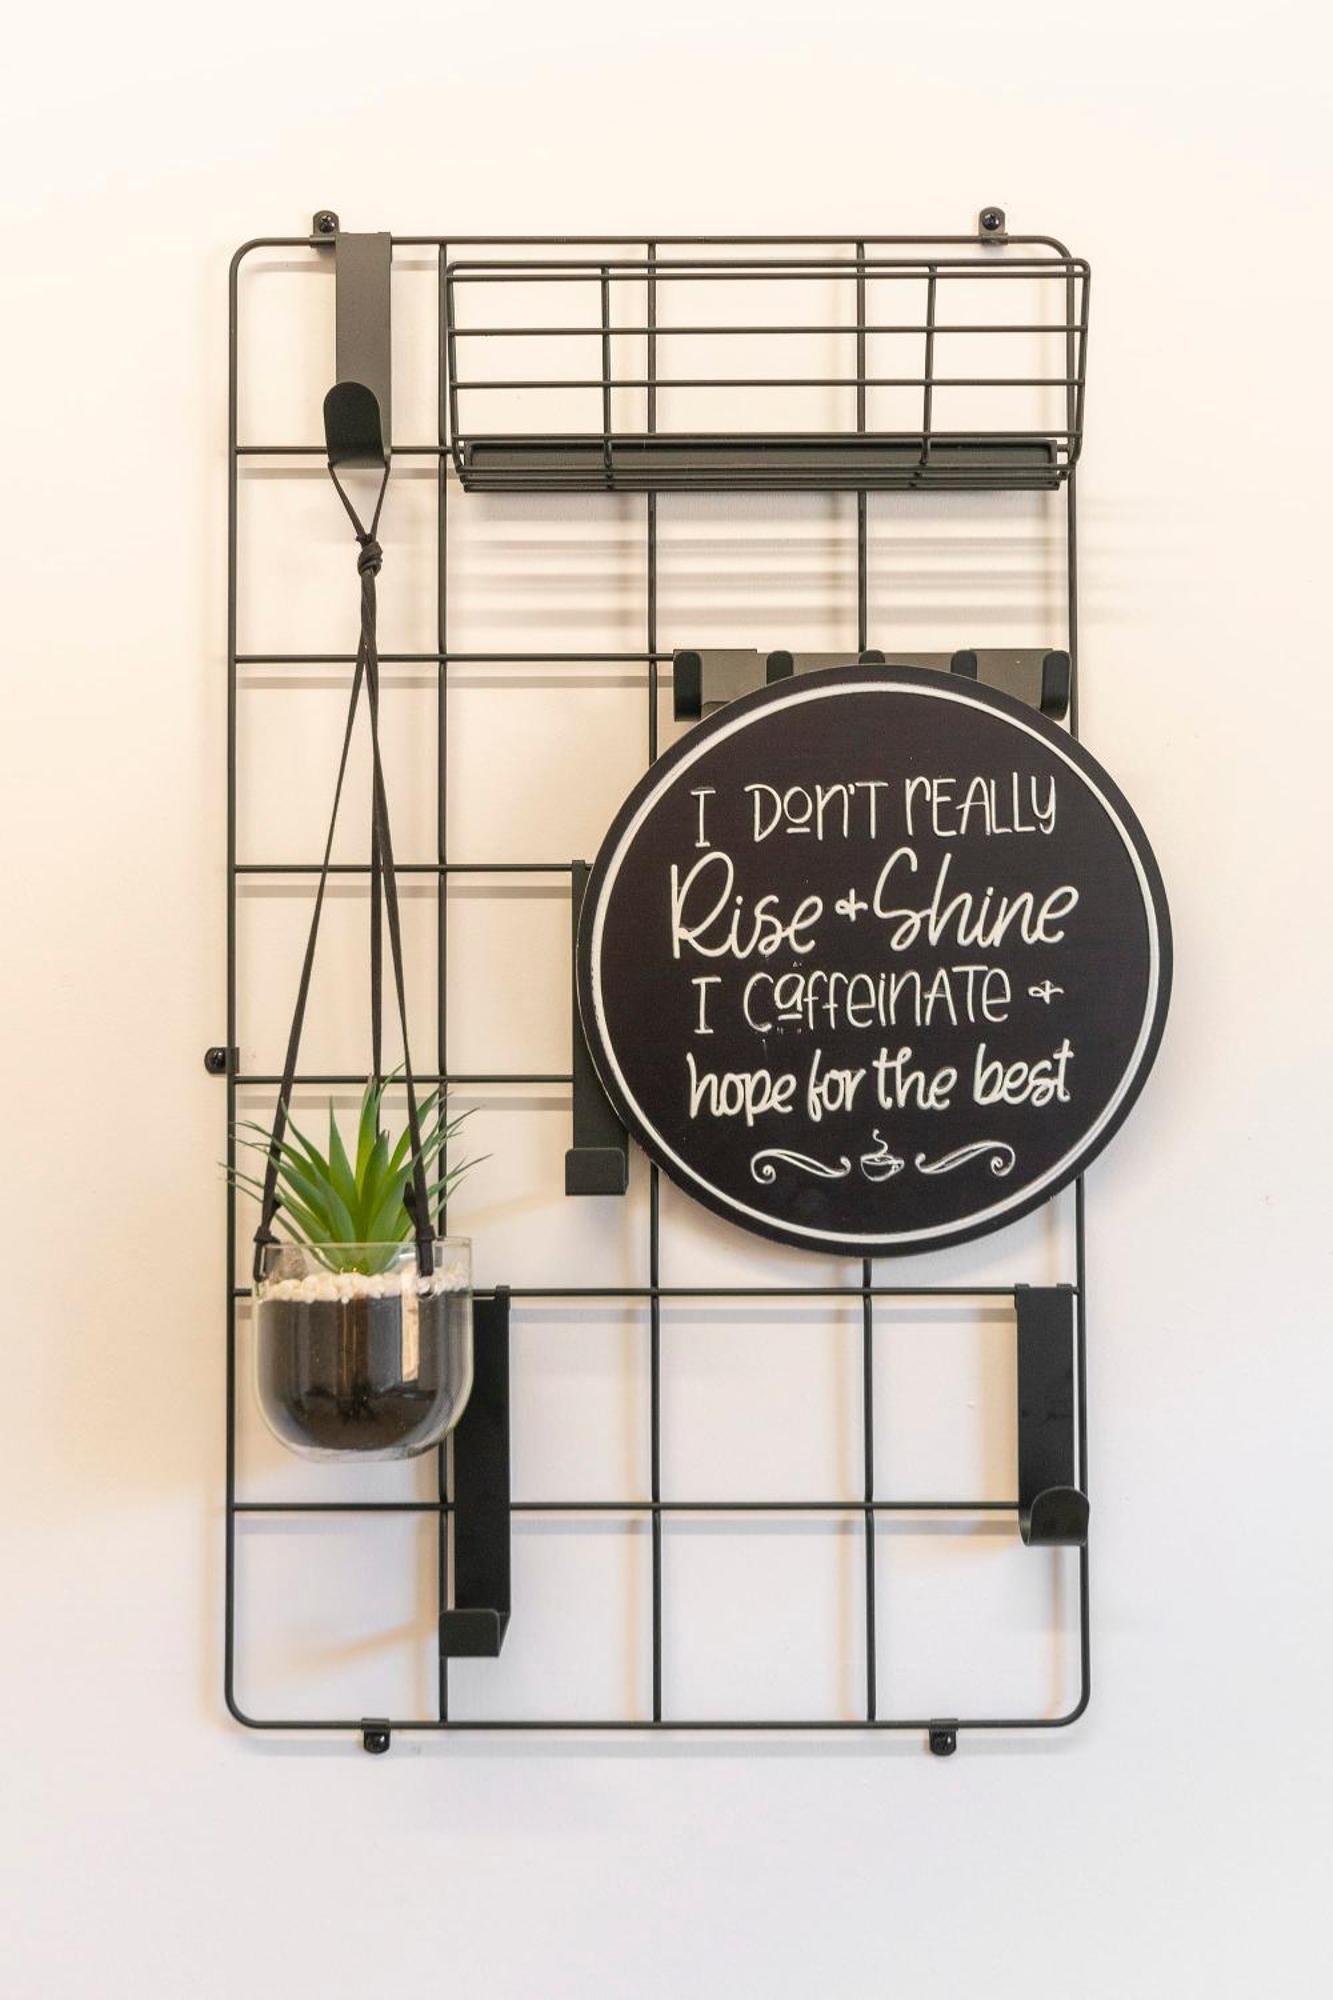 I DON'T REALLY
Rise & Shine
I CAFFEINATE &
hope for the best